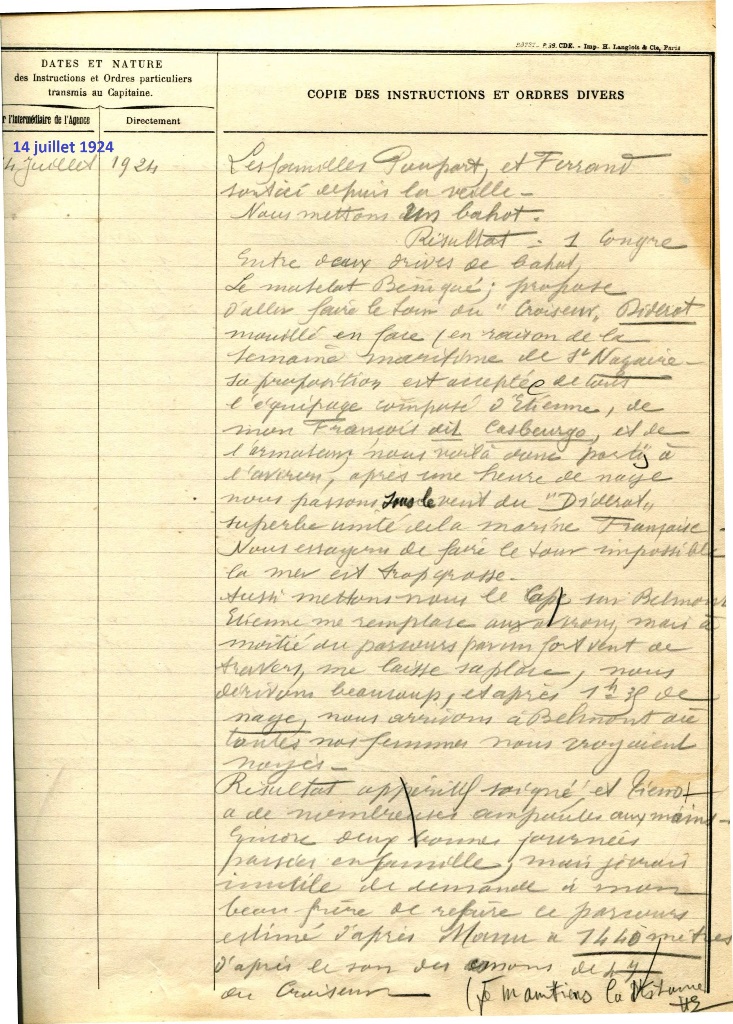 P.39. CDK. - Imp. H. Langlois & Cie, Paris
DATES ET NATURE
des Instructions et Ordres particuliers
transmis au Capitaine.
r l'Intermédiaire de l'Agence
Directement
COPIE DES INSTRUCTIONS ET ORDRES DIVERS
14 juillet 1924
14 Juillet 1924
Les familles Poupart, et Ferrand
sont ici depuis la veille -
Nous mettons un bahot.
Résultat - 1 Congre
Entre deux drives de bahot,
Le matelot Béniqué; propose
d'aller faire le tour du "Croiseur, Diderot
mouillé en face (en raison de la
semaine maritime de St Nazaire -
sa proposition est acceptée de tous
l'équipage composé d'Etienne, de
mon François dit Casbeurgo, et de
l'armateur, nous voilà donc partis à
l'aviron, après une heure de nage
nous passons sous le vent du "Diderot"
superbe unité de la marine Française -
Nous essayons de faire le tour impossible
la mer est trop grosse -
Aussi mettons nous le Cap sur Belmont
Etienne me remplace aux avirons, mais à
moitié du parcours par un fort vent de
travers, me laisse sa place, nous
dérivons beaucoup, et après 1h 35 de
nage, nous arrivons à Belmont où
toutes nos femmes nous croyaient
noyés -
Résultat appéritif soigné et Tienot
a de nombreuses ampoules aux mains -
Encore deux bonnes journées
passées en famille, mais je crois
inutile de demander à mon
beau frère de refaire ce parcours
estimé d'après Manu à 1440 mètres
d'après le son des canons de 47
du Croiseur
(Je maintiens la distance